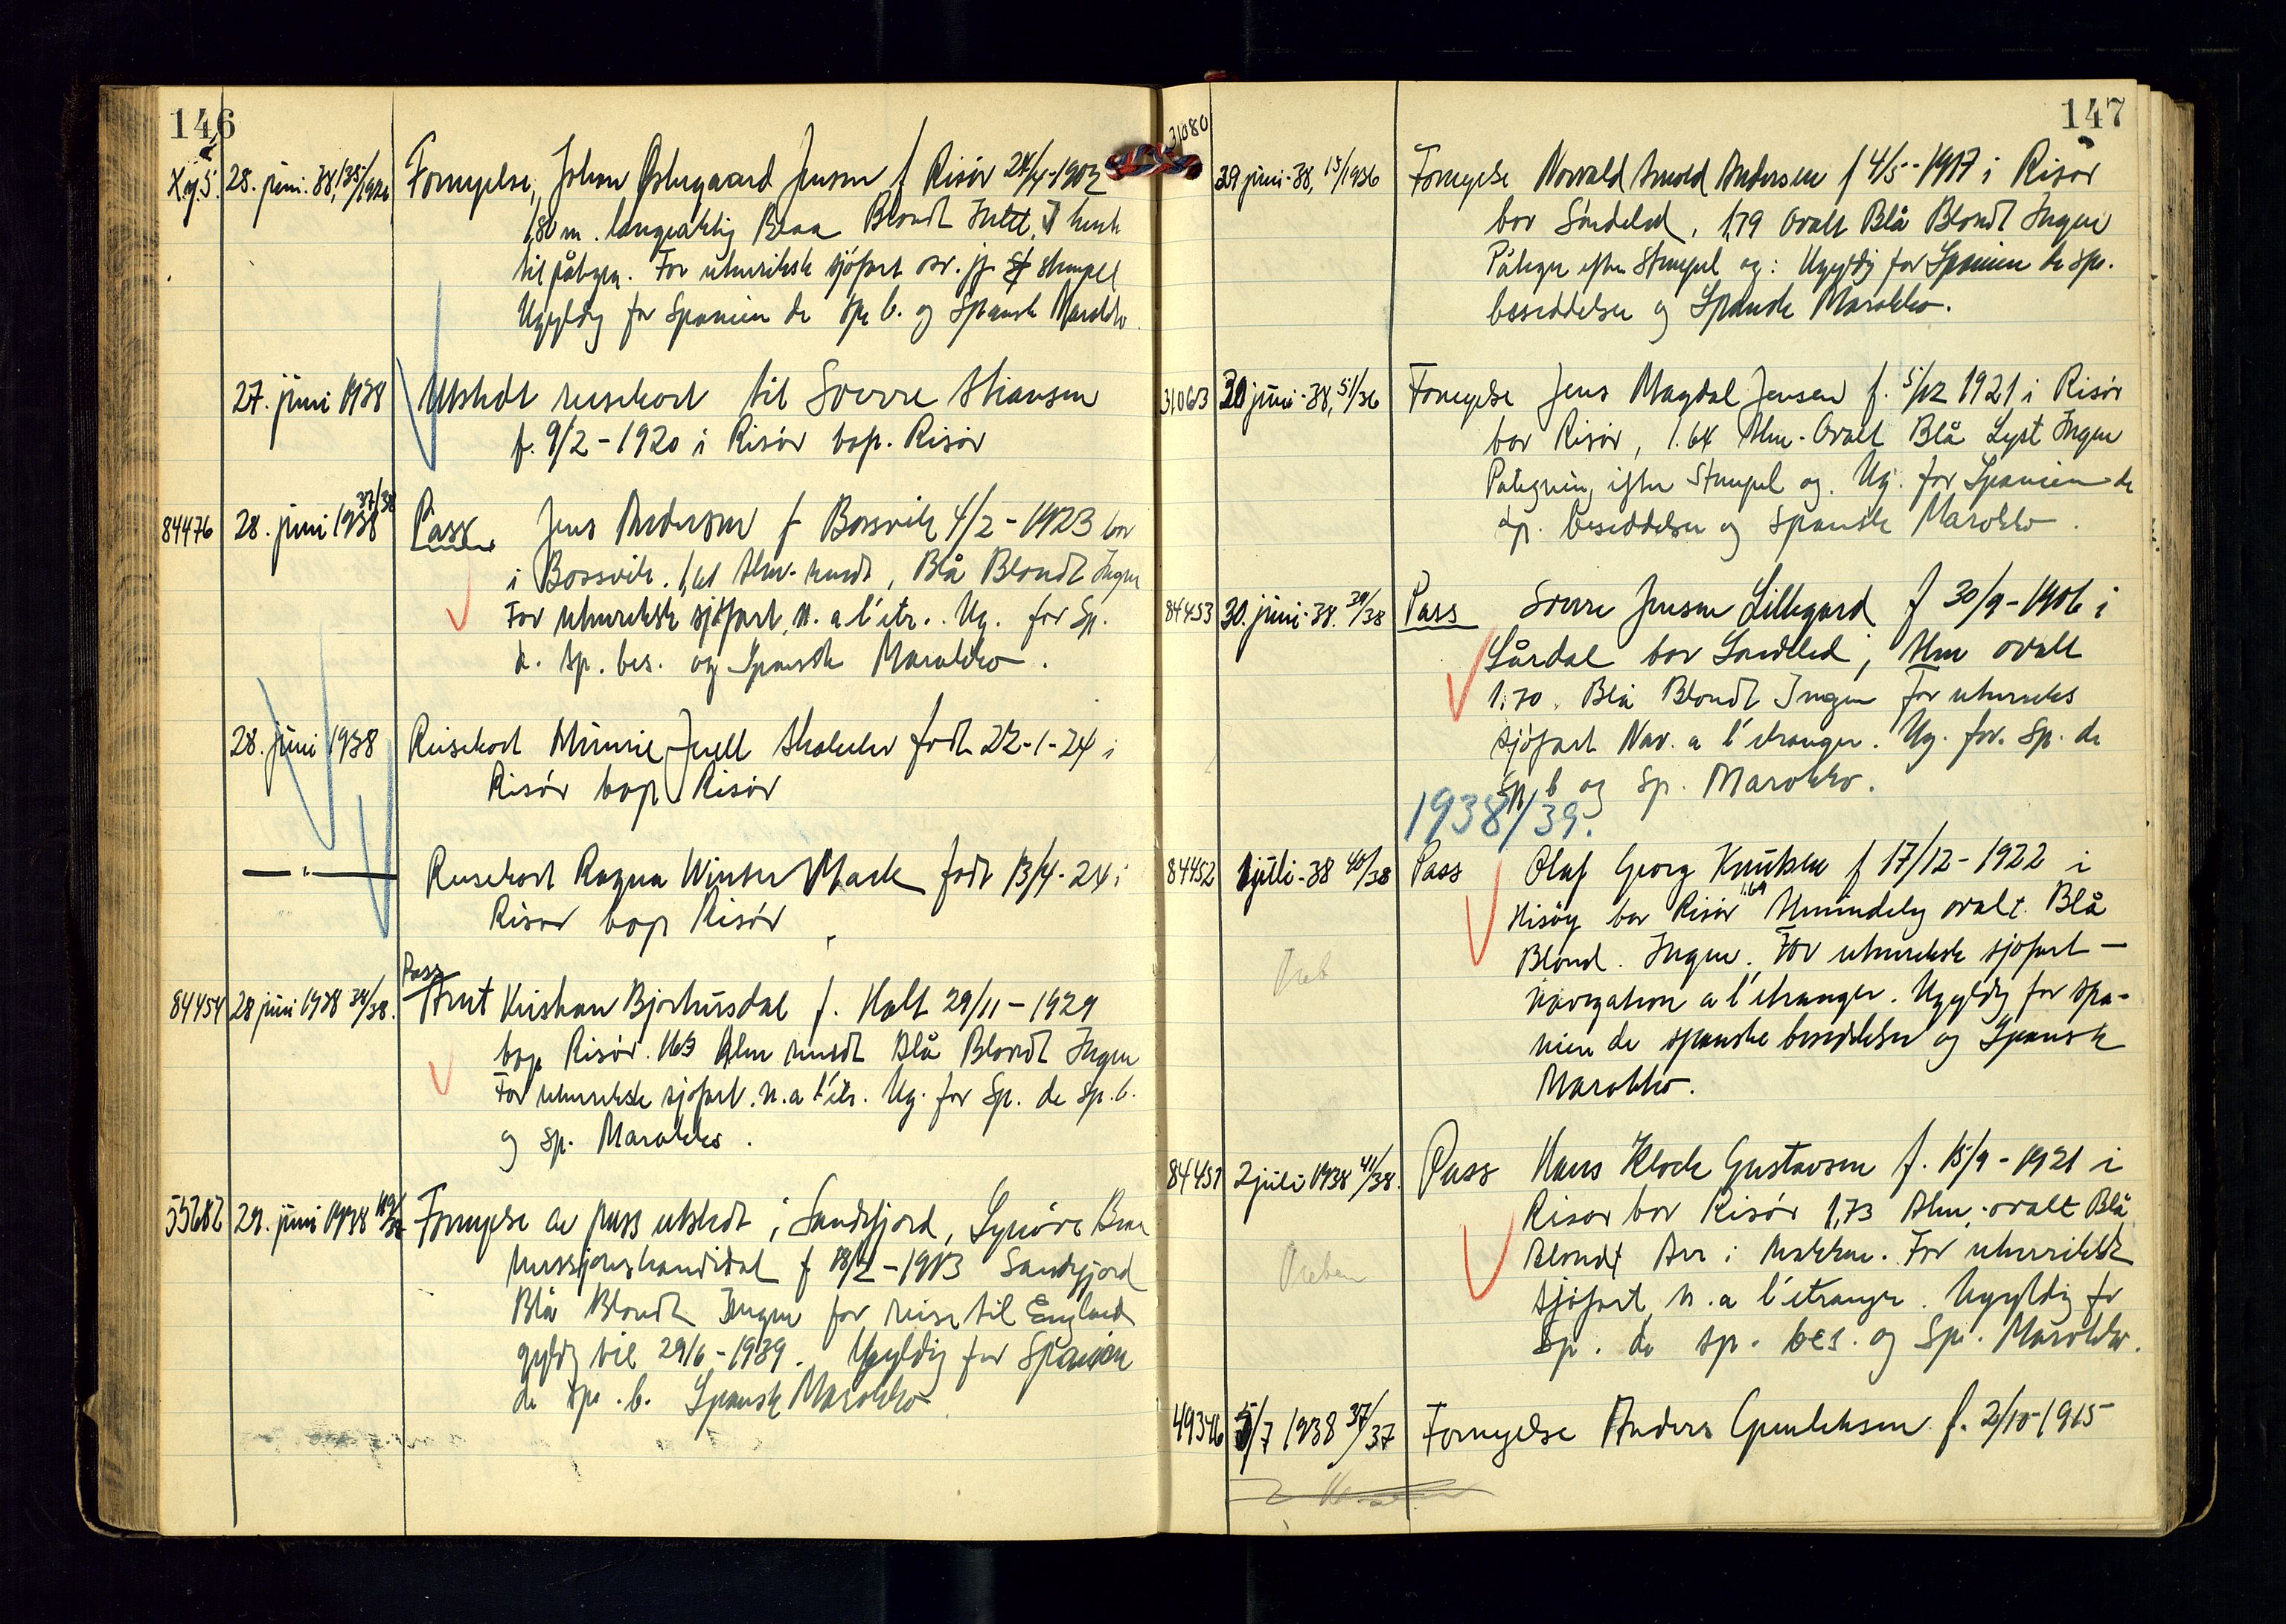 146
28. juni. 38, 135/1936 Fornyelse, Johan Østregaard Jensen f Risör 24/4-1903
1,80 m. langaktig Blaa Blondt Intet,
til påtegn. For utenriksk sjöfart stempel
Ugyldig for Spanien de sp. b. og Spansk Marokko.
27. juni 1938 Utstedt reisekort til Sverre Hansen
f. 9/2-1920 i Risör bop. Risör
84476 28. juni 1938 37/38 Pass Jens Andersen f Bossvik 4/2-1923 bor
i Bossvik. 1,61 Alm. rundt, Blå Blondt Ingen
For utenriksk sjöfart, n. a l'etr.. Ug. for Sp.
d. sp. bes. og Spansk Marokko.
28. juni 1938 Reisekort Minnie Juell födt 22-1-24 i
Risör bop. Risör
— " — Reisekort Ragna Winter Mack födt 13/4-24 i
Risör bop Risör
84454 28 juni 1938 38/38. Pass Arnt Kristian Bjorhusdal f. Holt 29/11-1929
bop Risör. 163 Alm rundt Blå Blondt Ingen
For utenrikske sjöfart. n. a l'etr. Ug. for Sp. de sp. b.
og sp. Marokko.
55282 29. juni 1938 Fornyelse av pass utstedt i Sandefjord, Synöve
missjonskandidat f 18/2-1913 Sandefjord
Blå Blondt Ingen for reise til England
gyldig til 29/6-1939. Ugyldig for Spanien
de sp. b. Spansk Marokko
147
31080 29 juni-38, 15/1936 Fornyelse Norvald Arnold Andersen f 4/5-1917 i Risör
bor Söndeled, 1,79 Ovalt Blå Blondt Ingen
Påtegn efter Stempel og: Ugyldig for Spanien de sp.
besiddelser og Spansk Marokko.
31063 30 juni-38, 51/36 Fornyelse Jens Magdal Jensen f. 5/12 1921 i Risör
bor Risör, 1.64 Alm. Ovalt Blå Lyst Ingen
Påtegning efter Stempel og. Ug. for Spanien de
sp. besiddelser og Spansk Marokko.
84453 30. juni-38. 39/38 Pass Sverre Jensen Lillegard f 30/9-1906 i
Lårdal bor Söndeled, Alm ovalt
1.70. Blå Blondt Ingen For utenriks
sjöfart Nav. a l'etranger. Ug. for. Sp. de
Sp. b og Sp. Marokko.
1938/39.
84452 1 juli-38 40/38 Pass Olaf Georg Knutsen f 17/12-1922 i
Risöy bor Risör 1.69 Almindelig ovalt. Blå
Blond. Ingen. For utenriksk sjöfart —
navigation a l'etranger. Ugyldig for Spa-
nien de spanske besiddelser og Spansk
Marokko.
84451 2 juli 1938 41/38. Pass Hans Klock Gustavsen f. 15/9-1921 i
Risör bor Risör 1,73 Alm. ovalt Blå
Blondt Arr i nakken. For utenriksk
sjöfart n. a l'etranger. Ugyldig for
Sp. de sp. bes. og Sp. Marokko.
49346 5/7 1938 37/37 Fornyelse Anders Gundersen f. 2/10-1915